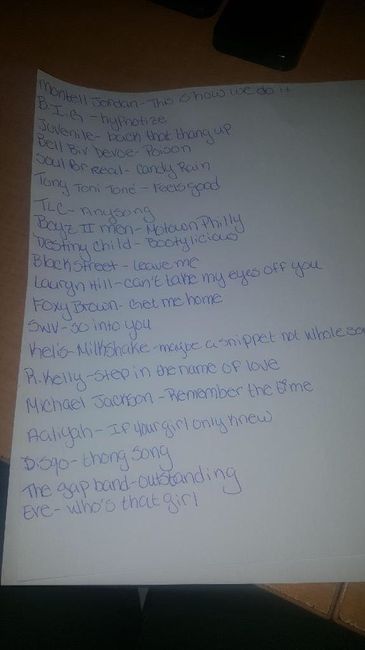 Montell Jordan - This is how we do it
B.I.G - hypnotize
Juvenile - back that thang up
Bell Biv Devoe - Poison
Soul For Real - Candy Rain
Tony Toni Toné - Feels good
TLC - Any song
Boyz II men - Motown Philly
Destiny Child - Bootylicious
Blackstreet - Leave me
Lauryn Hill - can't take my eyes off you
Foxy Brown - Get me home
SWV - So into you
Kelis - Milkshake - maybe a snippet not whole so
R. Kelly - Step in the name of love
Michael Jackson - Remember the time
Aaliyah - If your girl only knew
Disqo - thong song
The gap band - outstanding
Eve - who's that girl